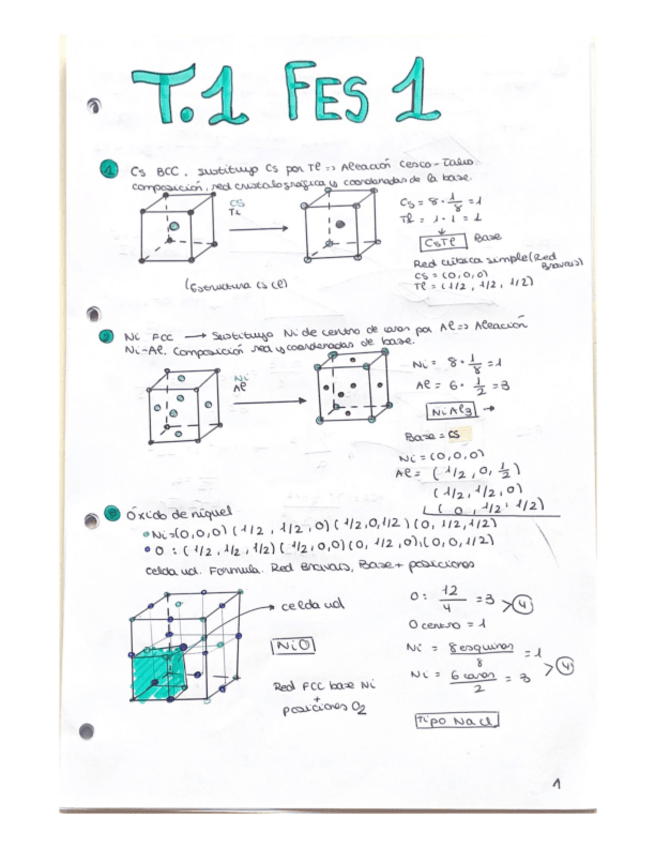 T.1 FES 1
1 Cs BCC. Sustituyo Cs por Tl => Aleación Cesco-Talio
composición, red cristalográfica y coordenadas de la base.
CS
TL
Cs = 8 · 1/8 = 1
Tl = 1 · 1 = 1
CsTl Base
Red cúbica simple (Red
Bravais)
CS = (0,0,0)
Tl = (1/2, 1/2, 1/2)
(Estructura CsCl)
2 Ni FCC → Sustituyo Ni de centro de caras por Al => Aleación
Ni-Al. Composición red y coordenadas de base.
Ni
Al
Ni = 8 · 1/8 = 1
Al = 6 · 1/2 = 3
NiAl3 →
Base = CS
Ni = (0,0,0)
Al = (1/2, 0, 1/2)
(1/2, 1/2, 0)
(0, 1/2, 1/2)
Óxido de níquel
Ni = (0,0,0) (1/2, 1/2, 0) (1/2, 0, 1/2) (0, 1/2, 1/2)
O : (1/2, 1/2, 1/2) (1/2, 0, 0) (0, 1/2, 0), (0, 0, 1/2)
celda ud. Formula. Red Bravais, Base + posiciones
celda ud
NiO
Red FCC base Ni
+
posiciones O2
O: 12/4 = 3 > 4
O centro = 1
Ni = 8 esquinas/8 = 1
Ni = 6 caras/2 = 3 > 4
Tipo NaCl
1